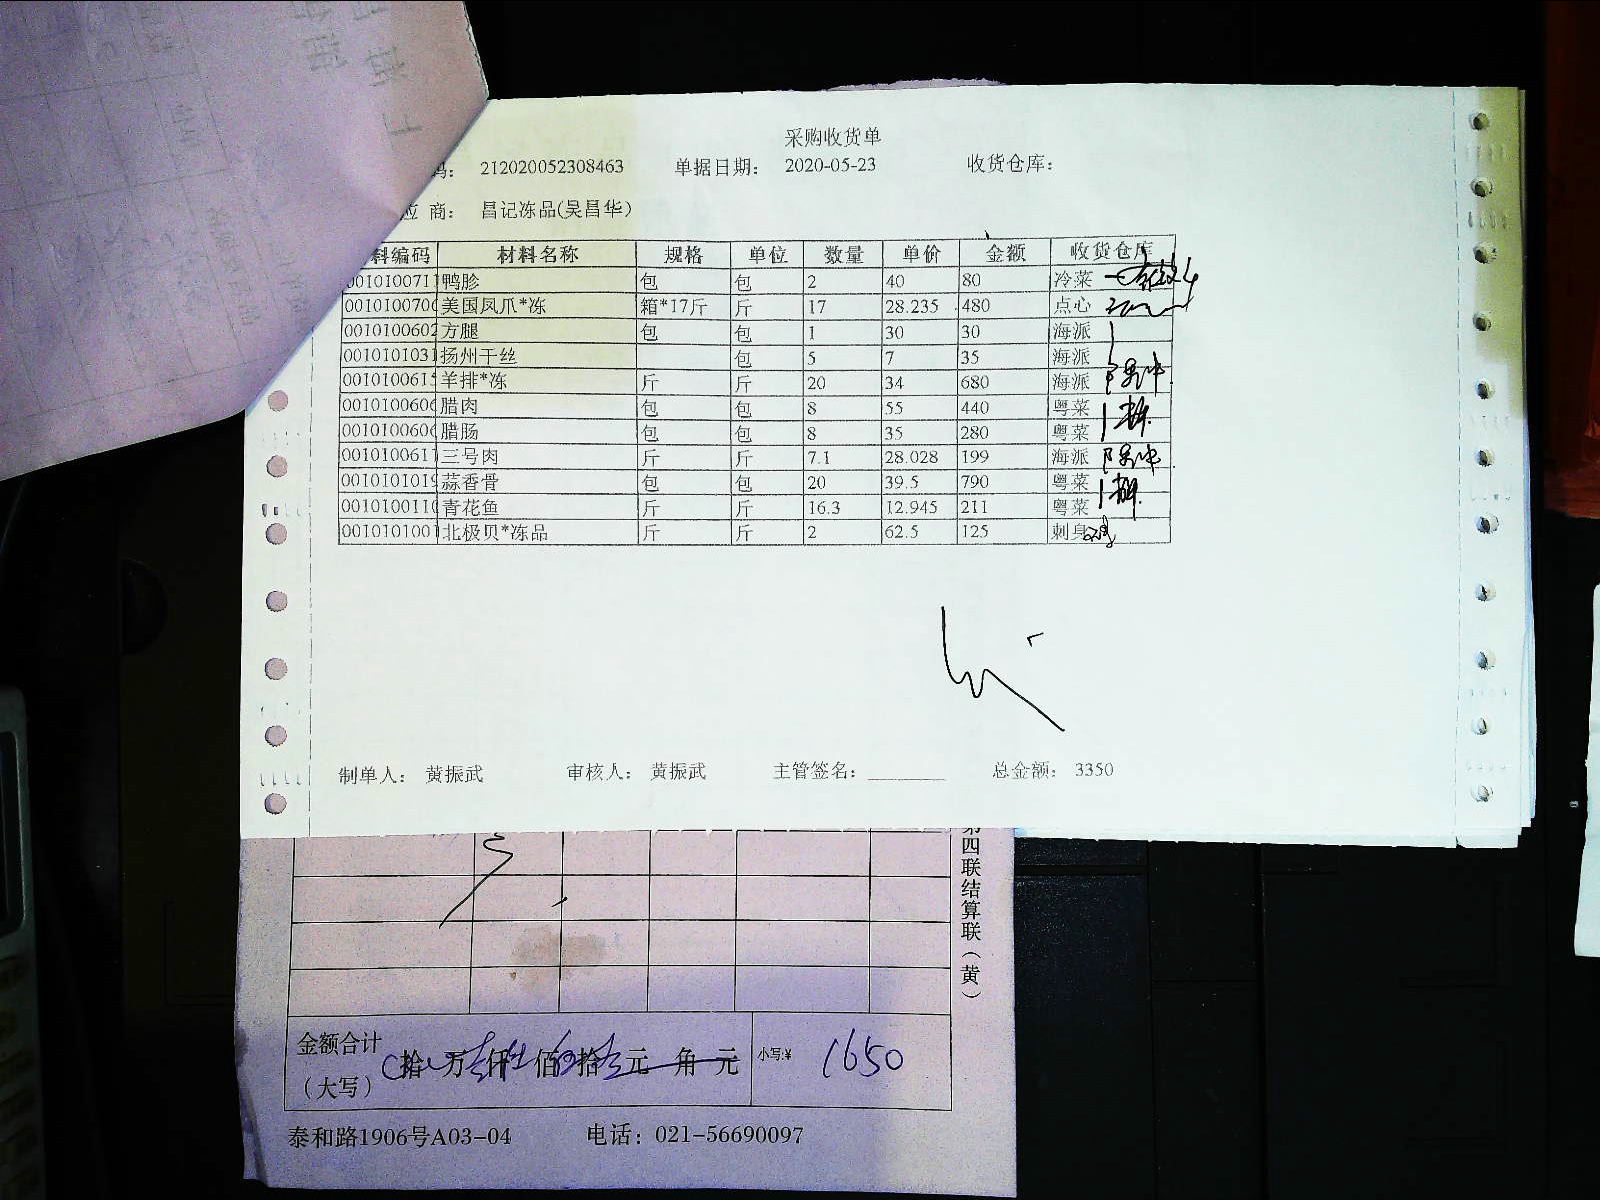 采购收货单
码: 212020052308463 单据日期: 2020-05-23 收货仓库:
应 商: 昌记冻品(吴昌华)
料编码 材料名称 规格 单位 数量 单价 金额 收货仓库
0010100711 鸭胗 包 包 2 40 80 冷菜
0010100700 美国凤爪*冻 箱*17斤 斤 17 28.235 480 点心
0010100602 方腿 包 包 1 30 30 海派
0010101031 扬州干丝 包 5 7 35 海派
0010100615 羊排*冻 斤 斤 20 34 680 海派
0010100606 腊肉 包 包 8 55 440 粤菜
0010100606 腊肠 包 包 8 35 280 粤菜
0010100611 三号肉 斤 斤 7.1 28.028 199 海派
0010101019 蒜香骨 包 包 20 39.5 790 粤菜
0010100110 青花鱼 斤 斤 16.3 12.945 211 粤菜
0010101001 北极贝*冻品 斤 斤 2 62.5 125 刺身
制单人: 黄振武 审核人: 黄振武 主管签名: 总金额: 3350
第四联结算联(黄)
金额合计
(大写) 拾 万 仟 佰 拾 元 角 元 小写:¥ 1650
泰和路1906号A03-04 电话: 021-56690097